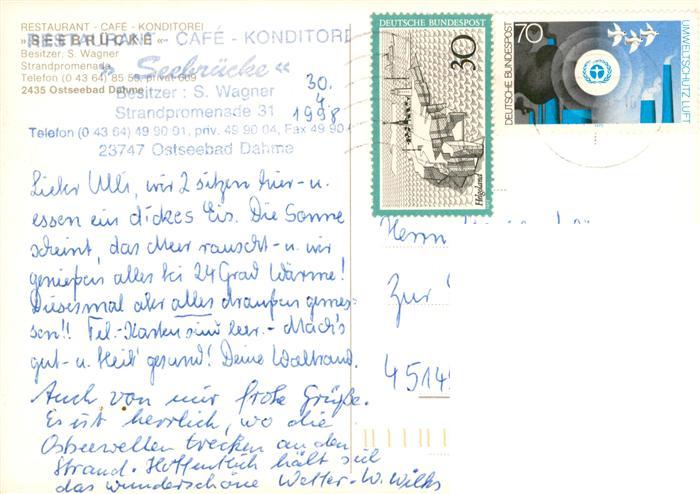 RESTAURANT - CAFÉ - KONDITOREI
»SEEBRÜCKE«
Besitzer: S. Wagner
Strandpromenade
Telefon (0 43 64) 85 53, privat 609
2435 Ostseebad Dahme
RESTAURANT - CAFÉ - KONDITOREI
„Seebrücke“
Besitzer : S. Wagner
Strandpromenade 31
Telefon (0 43 64) 49 90 91, priv. 49 90 04, Fax 49 90
23747 Ostseebad Dahme
30.
4.
1998
DEUTSCHE BUNDESPOST
30
Helgoland
70
DEUTSCHE BUNDESPOST
UMWELTSCHUTZ: LUFT
Lieber Ulli, wir 2 sitzen hier - u.
essen ein dickes Eis. Die Sonne
scheint, das Meer rauscht - u. wir
genießen alles bei 24 Grad Wärme!
Diesesmal aber alles draußen genies-
sen!! Tel.-Karten sind leer. - Mach's
gut - u. bleib' gesund! Deine Waltraud.
Auch von mir frohe Grüße.
Es ist herrlich, wo die
Ostseewellen trecken an den
Strand. Hoffentlich hält sich
das wunderschöne Wetter. W. Wilks
Herrn
Zur
4514